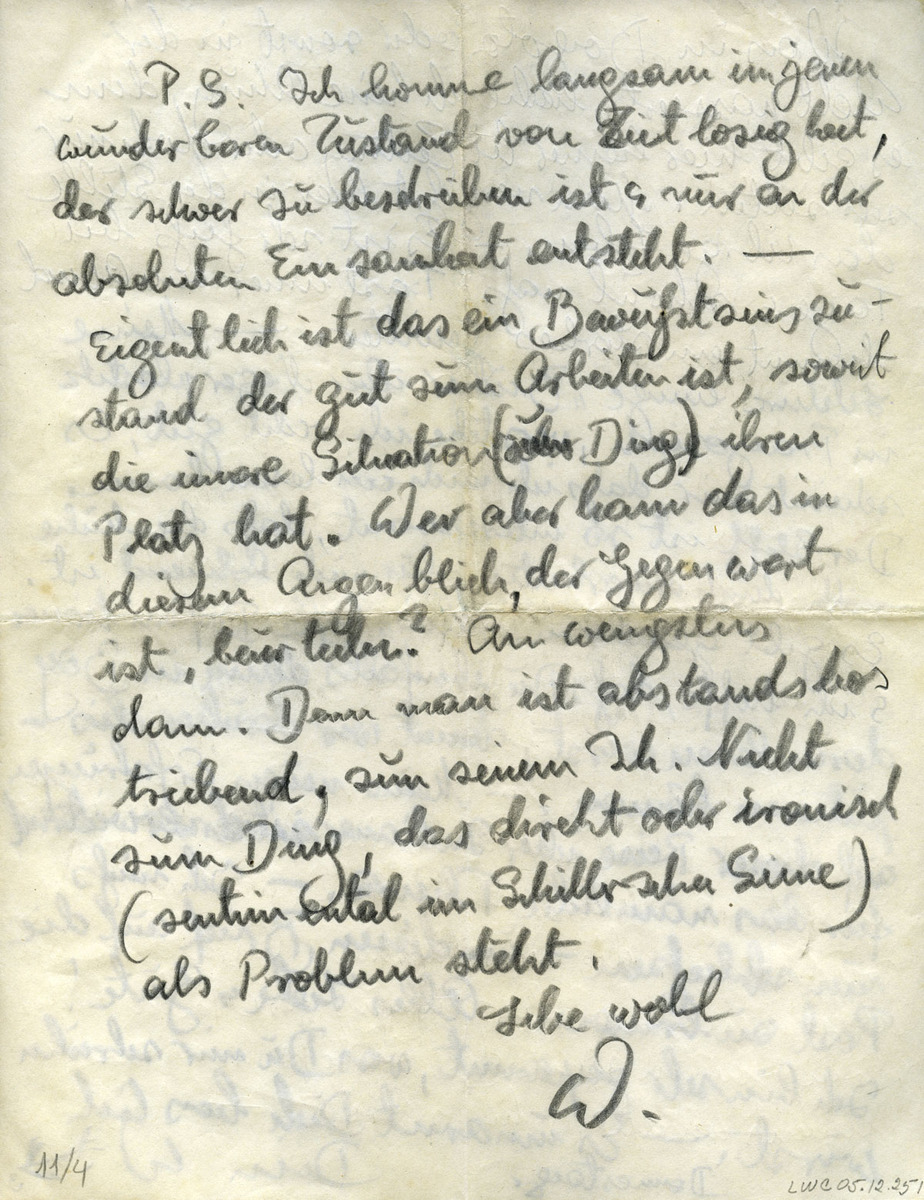 P.S. Ich komme langsam in jenen
wunderbaren Zustand von Zeitlosigkeit,
der schwer zu beschreiben ist & nur an der
absoluten Einsamkeit entsteht. —
Eigentlich ist das ein Bewußtseinszu-
stand der gut zum Arbeiten ist, soweit
die innere Situation (zum Ding) ihren
Platz hat. Wer aber kann das in
diesem Augenblick, der Gegenwart
ist, beurteilen? Am wenigsten
dann. Denn man ist abstandslos
treibend, zum seinem Ich. Nicht
zum Ding, das direkt oder ironisch
(sentimental im Schillerschen Sinne)
als Problem steht.
Lebe wohl
W.
11/4
LWC 05.12.25